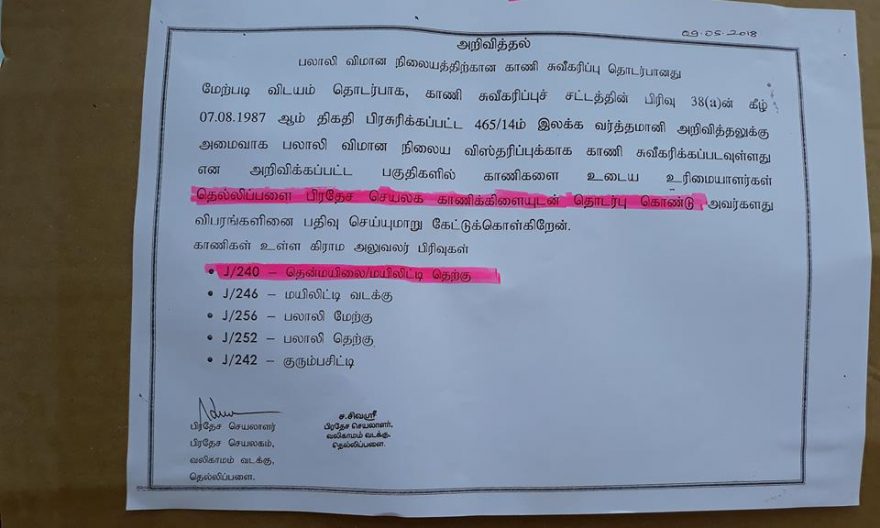 09.05.2018
அறிவித்தல்
பலாலி விமான நிலையத்திற்கான காணி சுவீகரிப்பு தொடர்பானது
மேற்படி விடயம் தொடர்பாக, காணி சுவீகரிப்புச் சட்டத்தின் பிரிவு 38(a)ன் கீழ்
07.08.1987 ஆம் திகதி பிரசுரிக்கப்பட்ட 465/14ம் இலக்க வர்த்தமானி அறிவித்தலுக்கு
அமைவாக பலாலி விமான நிலைய விஸ்தரிப்புக்காக காணி சுவீகரிக்கப்படவுள்ளது
என அறிவிக்கப்பட்ட பகுதிகளில் காணிகளை உடைய உரிமையாளர்கள்
தெல்லிப்பளை பிரதேச செயலக காணிக்கிளையுடன் தொடர்பு கொண்டு அவர்களது
விபரங்களினை பதிவு செய்யுமாறு கேட்டுக்கொள்கிறேன்.
காணிகள் உள்ள கிராம அலுவலர் பிரிவுகள்
• J/240 – தென்மயிலை/மயிலிட்டி தெற்கு
• J/246 – மயிலிட்டி வடக்கு
• J/256 – பலாலி மேற்கு
• J/252 – பலாலி தெற்கு
• J/242 – குரும்பசிட்டி
பிரதேச செயலாளர்
பிரதேச செயலகம்,
வலிகாமம் வடக்கு,
தெல்லிப்பளை.
ச.சிவஸ்ரீ
பிரதேச செயலாளர்,
வலிகாமம் வடக்கு,
தெல்லிப்பளை.